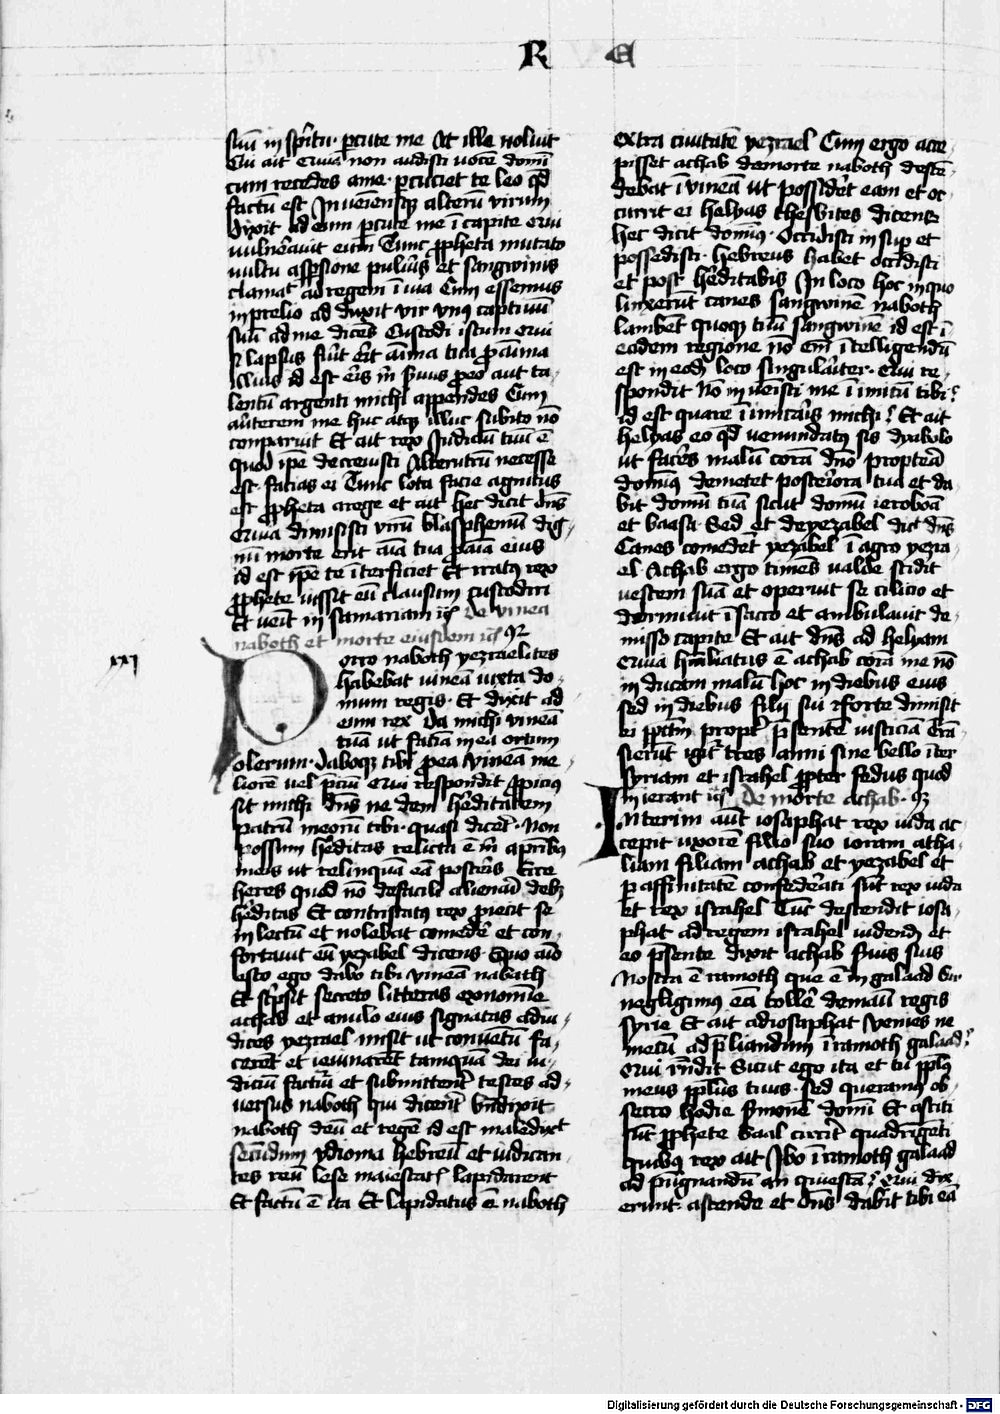 R E
suū in spiritu percute me Et ille noluit
Cui ait Cuius non audisti vocē domī
cum recedes a me percuciet te leo qd
factū est Inveniensque alterū virum
dixit ad eum percute me ī capite Cui
vulneravit eum Tunc propheta mutato
vultu aspersione pulveris et sangwinis
clamat ad regem ī via Cum essemus
in prelio adduxit vir unus captivū
suū ad me dicens Custodi istum Cui
si lapsus fuerit erit aīma tua pro aīma
illius id est eris mihi servus pro eo aut ta
lentū argenti michi appendes Cum
autem me huc atque illuc subito nō
comparuit Et ait rex Judiciū tuū ē
quod ipse decrevisti Alterutrū necesse
est facias ei Tunc lota facie agnitus
est propheta a rege et ait hec dicit dns
Quia dimisisti virū blasphemū dig
nū morte erit aīa tua pro aīa eius
id est ipse te īterficiet Et iratus rex
prophete iussit eū clausum custodiri
Et veit in samariam De vinea
naboth et morte eiusdem
xxi
Porro naboth yezraelites
habebat vineā iuxta do
mum regis Et dixit ad
eum rex Da michi vineā
tuā ut faciā in ea ortum
olerum Daboque tibi pro ea vineā me
liorē vel preciū Cui respondit propicius
sit michi dns ne dem hereditatem
patrū meorū tibi quasi diceret Non
possum hereditas relicta ē mihi a patribus
meis ut relinquā eā posteris
heres quod nō de facili alienari debet
hereditas Et contristatus rex proiecit se
in lectū et nolebat comedere et con
fortavit eū yezabel dicens Equo aīo
esto ego dabo tibi vineā nabath
Et scripsit secreto litteras ex nomine
achab et anulo eius signatas ad iu
dices yezrael misit ut conventū fa
cerent et ieiunarent tamquā dei iu
diciū facturi et submitterent testes ad
versus naboth qui dicerent benedixit
naboth deū et regē id est maledixit
secūdum ydioma hebreū et iudican
tes reū lese maiestatis lapidarent
Et factū ē ita Et lapidatus ē naboth
extra civitatē yezrael Cum ergo acce
pisset achab de morte naboth descē
debat ī vineā ut possideret eam et oc
currit ei helyas thesbites dicens
hec dicit dominus Occidisti insuper et
possedisti hebreus habet occidisti
et post hereditabis In loco hoc in quo
linxerūt canes sangwinē naboth
lambēt quoque tuū sangwinē id est ī
eadem regione nō enim ītelligendū
est in eodem loco singulariter Cui re
spondit Nō invēisti me īimicū tibi
id est quare īimicaris michi Et ait
helyas eo qd venundatus sis dyabolo
ut faceres malū corā dno propterea
dominus demetet posteriora tua et da
bit domū tuā sicut domū ieroboā
et baasa Sed et de yezabel dicit dns
Canes comedēt yezabel ī agro yezra
el Achab ergo timēs valde scidit
vestem suā et operuit se cilicio et
dormivit ī sacco et ambulavit de
misso capite Et ait dns ad helyam
Quia humiliatus ē achab corā me nō
inducam malū hoc in diebus eius
sed in diebus filii sui forte dimisit
ei peccatum propter presentē iusticiā Trā
sierūt igitur tres anni sine bello inter
syriam et israhel propter fedus quod
inierant De morte achab
Interim autem iosaphat rex iuda ac
cepit uxorē filio suo ioram atha
liam filiam achab et yezabel et
per affinitatē confederati sūt rex iuda
et rex israhel Tūc descendit iosa
phat ad regem israhel videndū et
eo presente dixit achab servis suis
Nostra ē ramoth que ē in galaad Cur
negligimus eā tollere de manu regis
syrie Et ait ad iosaphat venies ne
mecū ad preliandum ī ramoth galaad
Cui respondit Sicut ego ita et tu populus
meus populus tuus sed queramus ob
secro hodie sermonē domī Et astiti
sūt prophete baal circiter quadrigēti
quibus rex ait Ibo ī ramoth galaad
ad pugnandū an quiescā Cui dix
erunt ascende et dns dabit tibi eā
Digitalisierung gefördert durch die Deutsche Forschungsgemeinschaft - DFG